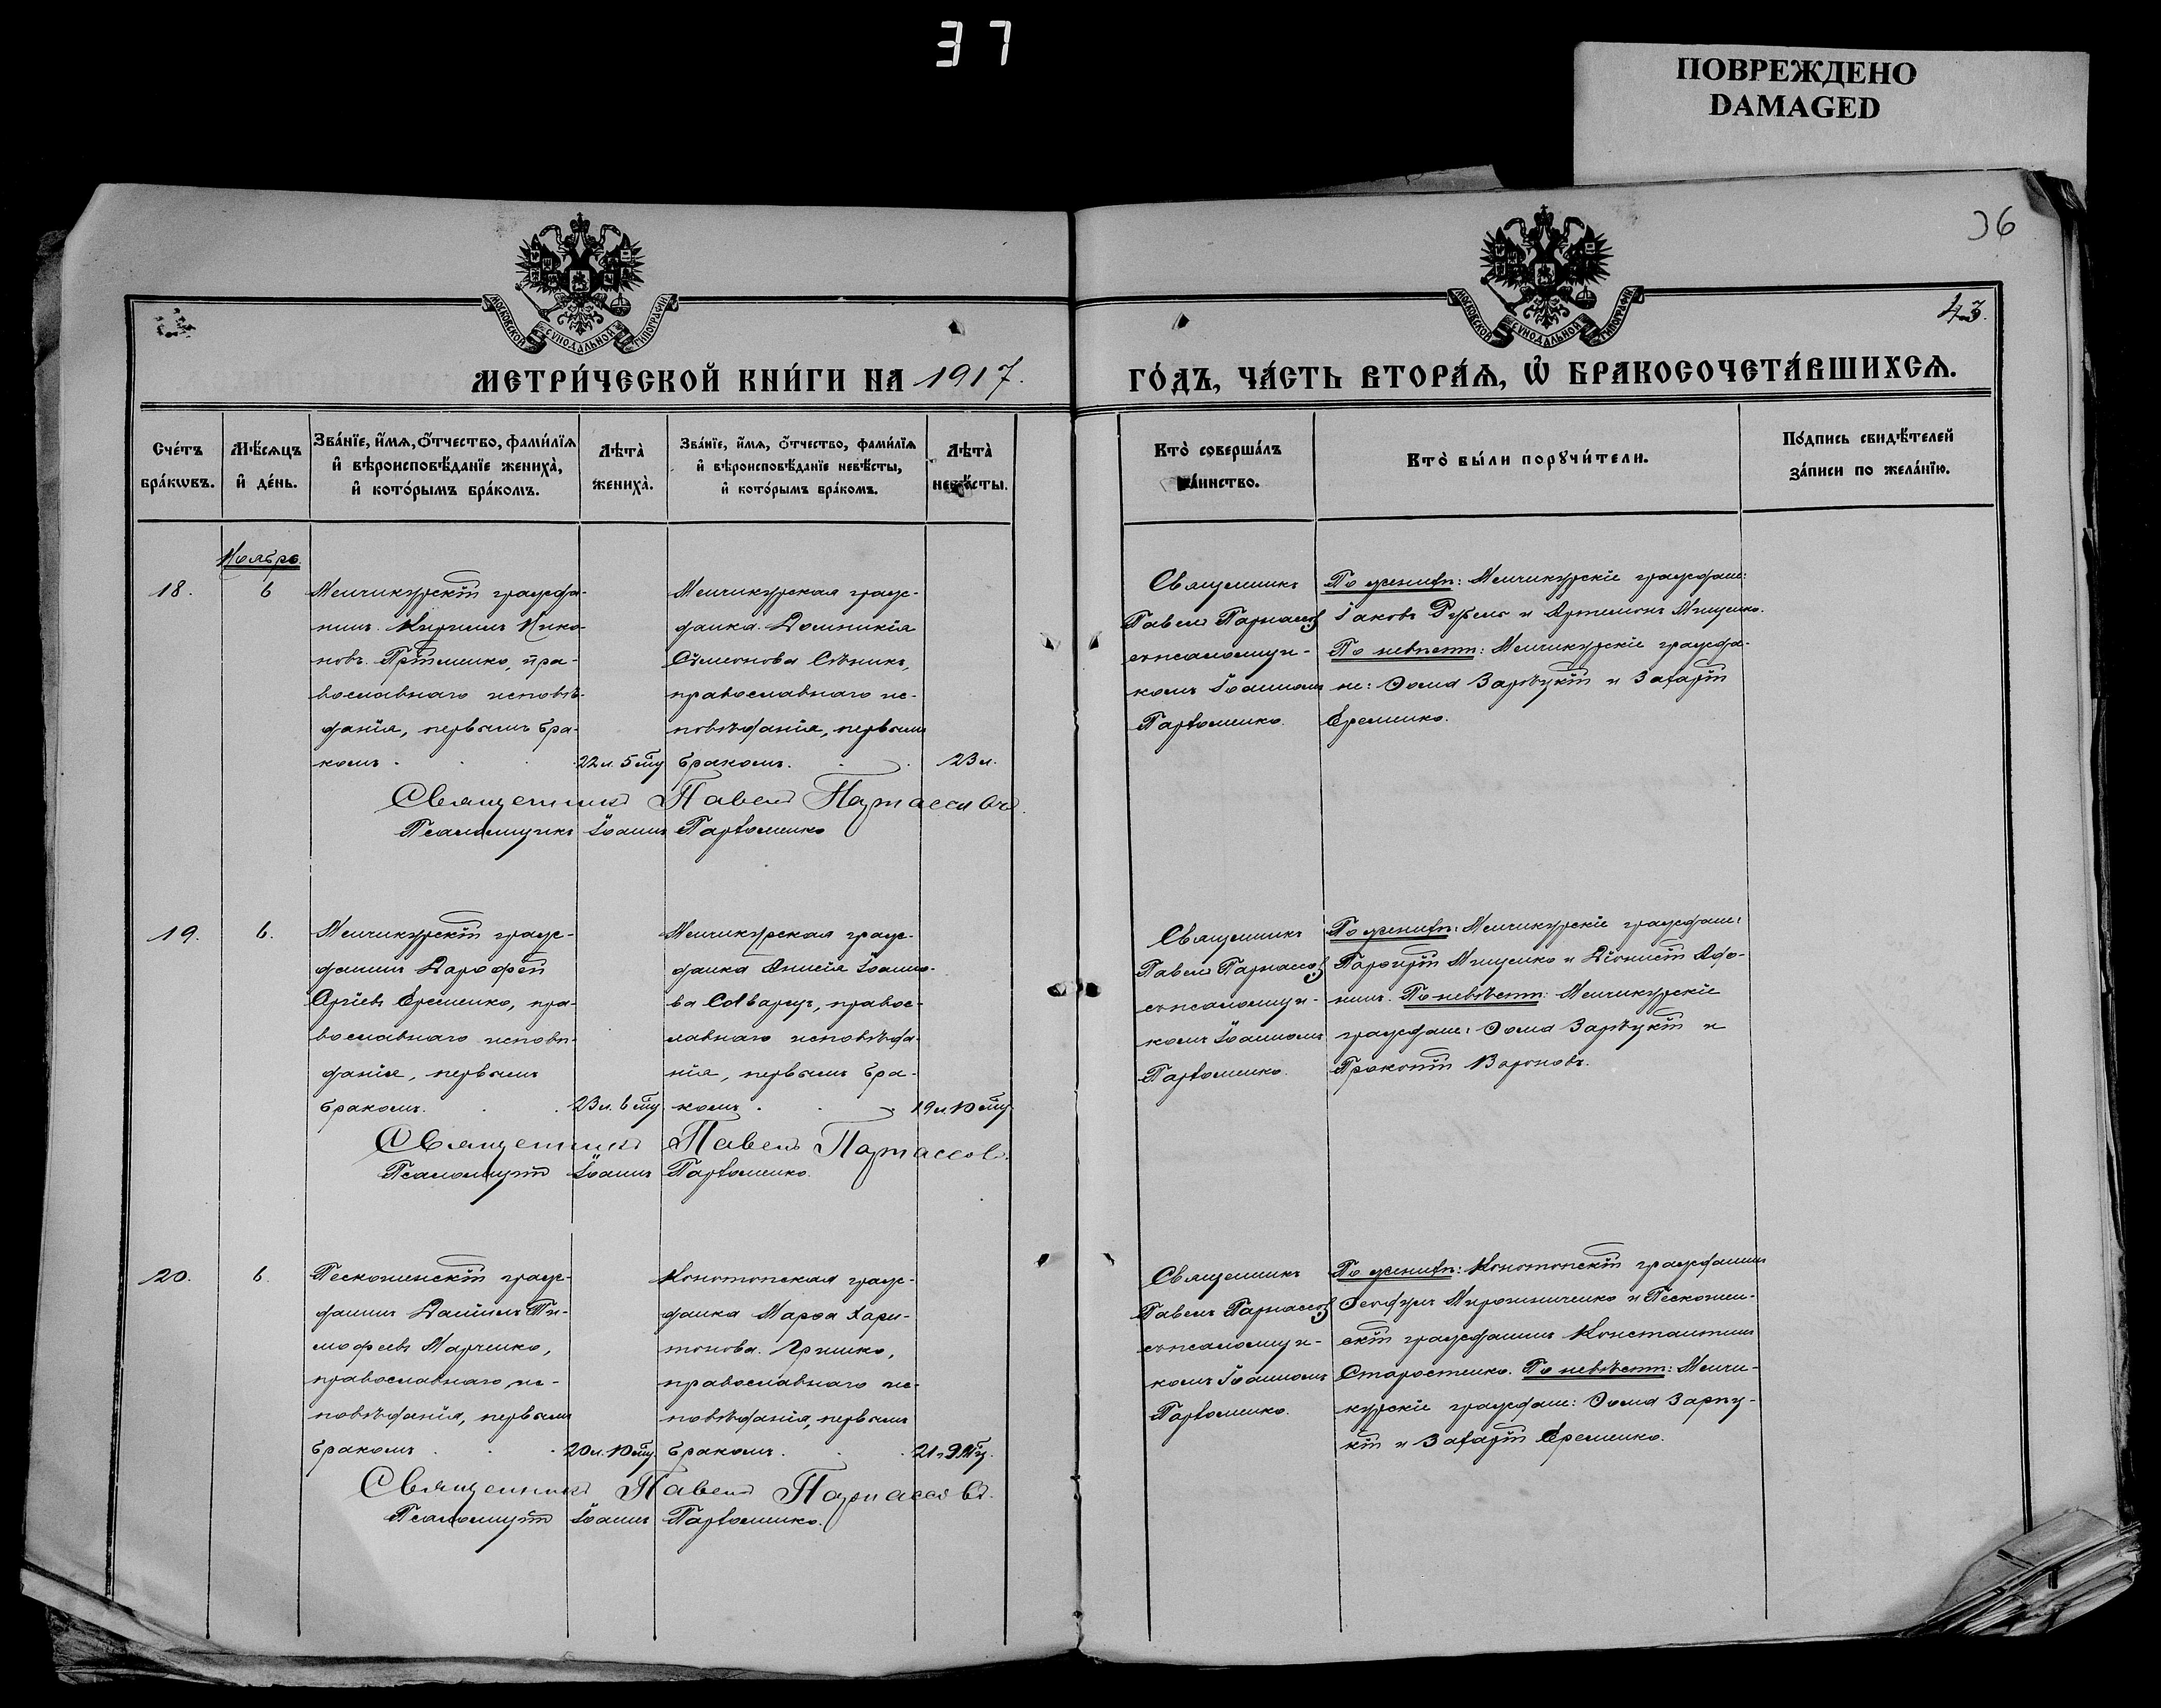 37
ПОВРЕЖДЕНО
DAMAGED
36
43.
МОСКОВСКОЙ СѴНОДАЛЬНОЙ ТИПОГРАФІИ
МОСКОВСКОЙ СѴНОДАЛЬНОЙ ТИПОГРАФІИ
МЕТРИ́ЧЕСКОЙ КНИ́ГИ НА 1917.
ГО́ДЪ, ЧА́СТЬ ВТОРА́Ѧ, Ѽ БРАКОСОЧЕТА́ВШИХСѦ.
Сче́тъ
бра́кѡвъ.
Мѣ́сяцъ
и҆ де́нь.
Зва́нїе, и҆́мѧ, ѻ҆́тчество, фами́лїѧ
и҆ вѣроисповѣ́данїе жениха̀,
и҆ кото́рымъ бра́комъ.
Лѣта̀
жениха̀.
Зва́нїе, и҆́мѧ, ѻ҆́тчество, фами́лїѧ
и҆ вѣроисповѣ́данїе невѣ́сты,
и҆ кото́рымъ бра́комъ.
Лѣта̀
невѣ́сты.
Кто̀ соверша́лъ
та́инство.
Кто̀ бы́ли порꙋчи́тели.
По́дпись свидѣ́телей
за́писи по жела́нїю.
Ноябрь
18.
6
Менчикурскій гражда-
нинъ Кириллъ Нико-
новъ
пра-
вославнаго исповѣ-
данія, первымъ бра-
комъ
22 л. 5 мц
Менчикурская граж-
данка Домникія
Сѵмеонова Сѣникъ,
православнаго ис-
повѣданія, первымъ
бракомъ.
23 л.
Священникъ
Павелъ Парнассовъ
съ псаломщи-
комъ Іоанномъ
Парѳоменко.
По женихѣ: Менчикурскіе граждане:
Іаковъ и Артемонъ Мищенко.
По невѣстѣ: Менчикурскіе гражда-
не: Ѳома Зарѣцкій и Захарій
Еременко.
Священникъ Павелъ Парнассовъ.
Псаломщикъ Іоаннъ Парѳоменко
19.
6.
Менчикурскій граж-
данинъ Дорофей
Еременко, пра-
вославнаго исповѣ-
данія, первымъ
бракомъ.
23 л. 6 мц
Менчикурская граж-
данка Анисія Іоанно-
ва правос-
лавнаго исповѣда-
нія, первымъ бра-
комъ
19 л. 10 мц
Священникъ
Павелъ Парнассовъ
съ псаломщи-
комъ Іоанномъ
Парѳоменко.
По женихѣ: Менчикурскіе граждане:
Порфирій Мищенко и Діонисій Афо-
нинъ. По невѣстѣ: Менчикурскіе
граждане: Ѳома Зарѣцкій и
Прокопій Вороновъ.
Священникъ Павелъ Парнассовъ.
Псаломщикъ Іоаннъ Парѳоменко.
20.
6.
Пескошинскій граж-
данинъ Даніилъ Ти-
мофеевъ Марченко,
православнаго ис-
повѣданія, первымъ
бракомъ
20 л. 10 мц
Конотопская граж-
данка Марѳа Хари-
тонова Гришко,
православнаго ис-
повѣданія, первымъ
бракомъ.
21 л. 9 мц.
Священникъ
Павелъ Парнассовъ
съ псаломщи-
комъ Іоанномъ
Парѳоменко.
По женихѣ: Конотопскій гражданинъ
Мирошниченко и Пескошин-
скій гражданинъ Константинъ
Старостенко. По невѣстѣ: Менчи-
курскіе граждане: Ѳома Зарѣц-
кій и Захарій Еременко.
Священникъ Павелъ Парнассовъ.
Псаломщикъ Іоаннъ Парѳоменко.